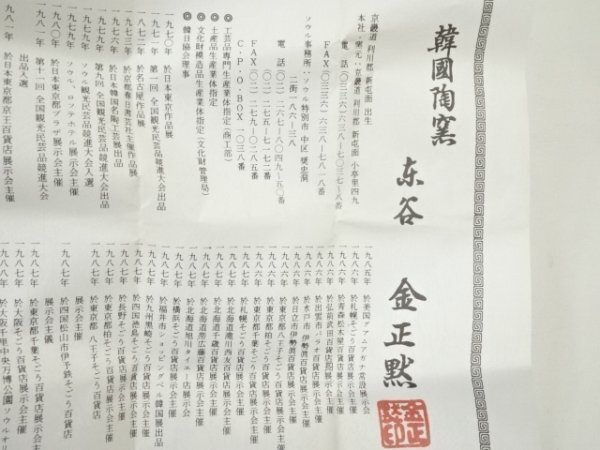 韓國陶窯
东谷 金正黙
京畿道 利川郡 新屯面 出生
本社・窯元・京畿道 利川郡 新屯面 小亭里四九
ソウル事務所・ソウル特別市 中区 奬忠洞
二街 一八六ー三八
C・P・O・BOX 一〇三八番
◎ 工芸品専門生産業体指定(商工部)
◎ 土産品生産業体指定
◎ 文化財模造品生産業体指定(文化財管理局)
◎ 韓日協会理事
一九七〇年 於日本東京作品展
一九七一年 第一回 全国観光民芸品競進大会出品
一九七二年 於名古屋作品展
一九七三年 於京都春日書芸社主催作品展
一九七四年 於日本韓国名陶工芸展出品
一九七九年 第九回 全国観光民芸品競進大会出品
一九七九年 ソウル観光民芸品競進大会入選
一九七九年 ソウル、ロッテホテル展示会主催
一九八〇年 於日本東京都プラザ展示会主催
一九八一年 第十一回 全国観光民芸品競進大会
出品入選
九八一年 於日本東京都京王百貨店展示会主催
一九八五年 於美国アアニアガナ常設展示会
一九八六年 於札幌そごう百貨店展示会主催
一九八六年 於青森松木屋百貨店展示会主催
一九八六年 於弘前武田百貨店展示会主催
一九八六年 於出雲市パラオ百貨店展示会主催
一九八六年 於水戸市 伊勢甚百貨店展示会主催
一九八六年 於日立市 伊勢甚百貨店展示会主催
一九八六年 於東京都八王子そごう百貨店展示会主催
一九八六年 於東京都千葉そごう百貨店展示会主催
一九八七年 於札幌そごう百貨店展示会主催
一九八七年 於北海道滝川西友百貨店展示会主催
一九八七年 於北海道千歳百貨店展示会主催
一九八七年 於北海道帯広藤百貨店展示会主催
一九八七年 於北海道旭川タイエー店展示会
一九八七年 於横浜そごう百貨店展示会主催
一九八七年 於福井市ショッピングベル韓国展出品
一九八七年 於九州黒崎そごう百貨店展示会主催
一九八七年 於四国徳島そごう百貨店展示会主催
一九八七年 於長野そごう百貨店展示会主催
一九八七年 於東京都柏そごう百貨店展示会主催
一九八七年 於東京都 八王子そごう百貨店
展示会主催
一九八七年 於四国松山市伊予鉄そごう百貨店
展示会主儀
一九八七年 於東京都千葉そごう百貨店展示会主催
九八七年 於大阪そごう百貨店展示会主催
九八八年 於大阪千里中央万博公園ソウルオリ